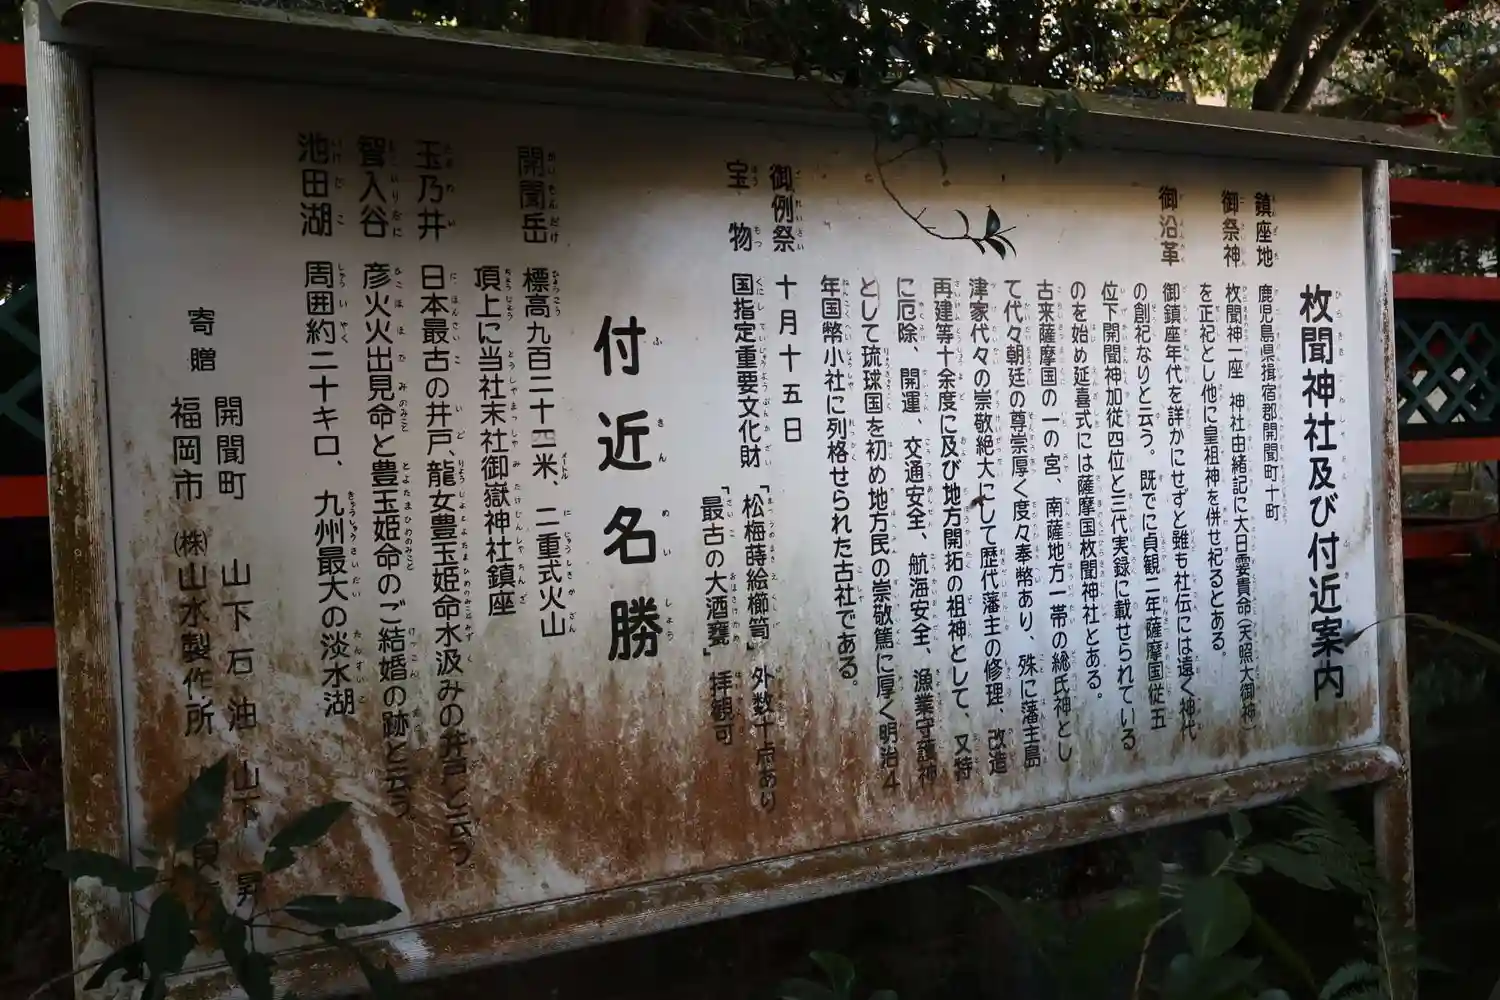 枚聞神社及び付近案内
鎮座地 鹿児島県揖宿郡開聞町十町
御祭神 枚聞神一座 神社由緒記に大日孁貴命(天照大御神)
を正祀とし他に皇祖神を併せ祀るとある。
御沿革 御鎮座年代を詳かにせずと雖も社伝には遠く神代
の創祀なりと云う。既でに貞観二年薩摩国従五
位下開聞神加従四位と三代実録に載せられている
のを始め延喜式には薩摩国枚聞神社とある。
古来薩摩国の一の宮、南薩地方一帯の総氏神とし
て代々朝廷の尊崇厚く度々奉幣あり、殊に藩主島
津家代々の崇敬絶大にして歴代藩主の修理、改造
再建等十余度に及び地方開拓の祖神として、又特
に厄除、開運、交通安全、航海安全、漁業守護神
として琉球国を初め地方民の崇敬篤に厚く明治4
年国幣小社に列格せられた古社である。
御例祭 十月十五日
宝物 国指定重要文化財 「松梅蒔絵櫛笥」外数十点あり
「最古の大酒甕」 拝観可
付近名勝
開聞岳 標高九百二十二米、二重式火山
頂上に当社末社御嶽神社鎮座
玉乃井 日本最古の井戸、龍女豊玉姫命水汲みの井戸と云う。
聟入谷 彦火火出見命と豊玉姫命のご結婚の跡と云う。
池田湖 周囲約二十キロ、九州最大の淡水湖
寄贈 開聞町 山下石油 山下昇
福岡市 (株)山水製作所